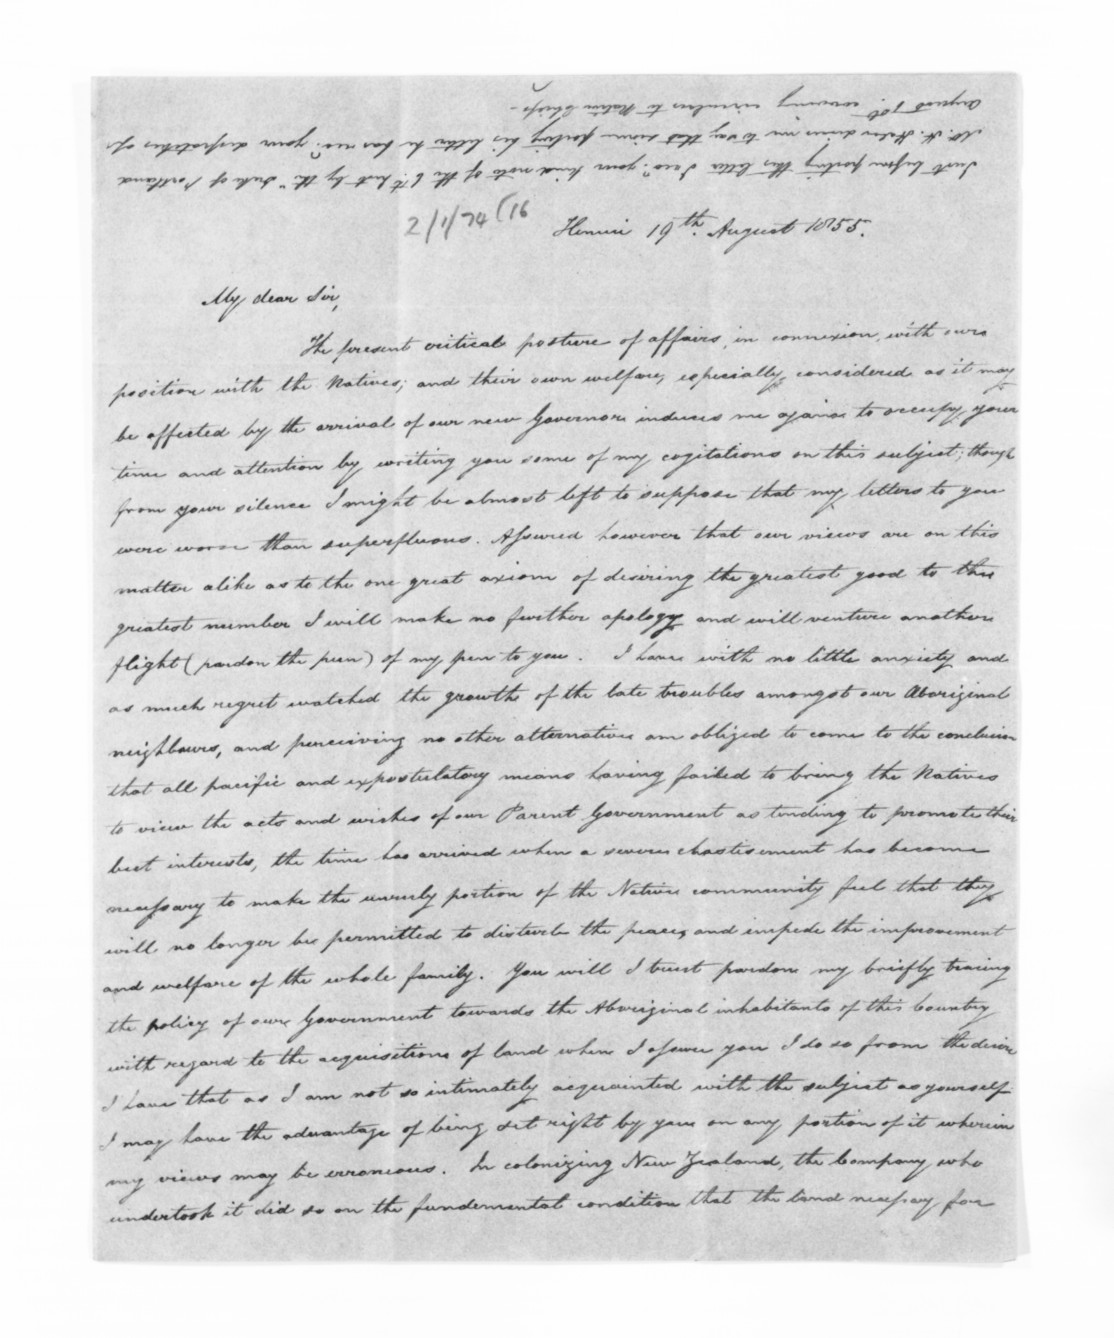 Just before posting this letter I recd. your kind note of the 6th. Inst by the "Duke of Portland
Mr. H. desires me to say that since posting his letter he has recd. your despatches of
August 1st. covering circulars to Native Chiefs -
2/1/74 (16
Henui 19th. August 1855.
My dear Sir,
The present critical posture of affairs, in connexion, with our
position with the Natives; and their own welfare, especially, considered as it may
be affected by the arrival of our new Governor induces me again to occupy your
time and attention by writing you some of my cogitations on this subject; though
from your silence I might be almost left to suppose that my letters to you
were worse than superfluous. Assured however that our views are on this
matter alike as to the one great axiom of desiring the greatest good to the
greatest number I will make no further apology and will venture another
flight (pardon the pun) of my pen to you. I have with no little anxiety and
as much regret watched the growth of the late troubles amongst our Aboriginal
neighbours, and perceiving no other alternative am obliged to come to the conclusion
that all pacific and expostulatory means having failed to bring the Natives
to view the acts and wishes of our Parent Government as tending to promote their
best interests, the time has arrived when a severe chastisement has become
necessary to make the unruly portion of the Native community feel that they
will no longer be permitted to disturb the peace, and impede the improvement
and welfare of the whole family. You will I trust pardon my briefly tracing
the policy of our Government towards the Aboriginal inhabitants of this Country
with regard to the acquisitions of land when I assure you I do so from the desire
I have that as I am not so intimately acquainted with the subject as yourself
I may have the advantage of being set right by you on any portion of it wherein
my views may be erroneous. In colonizing New Zealand, the Company who
undertook it did so on the fundemental condition that the land necessary for